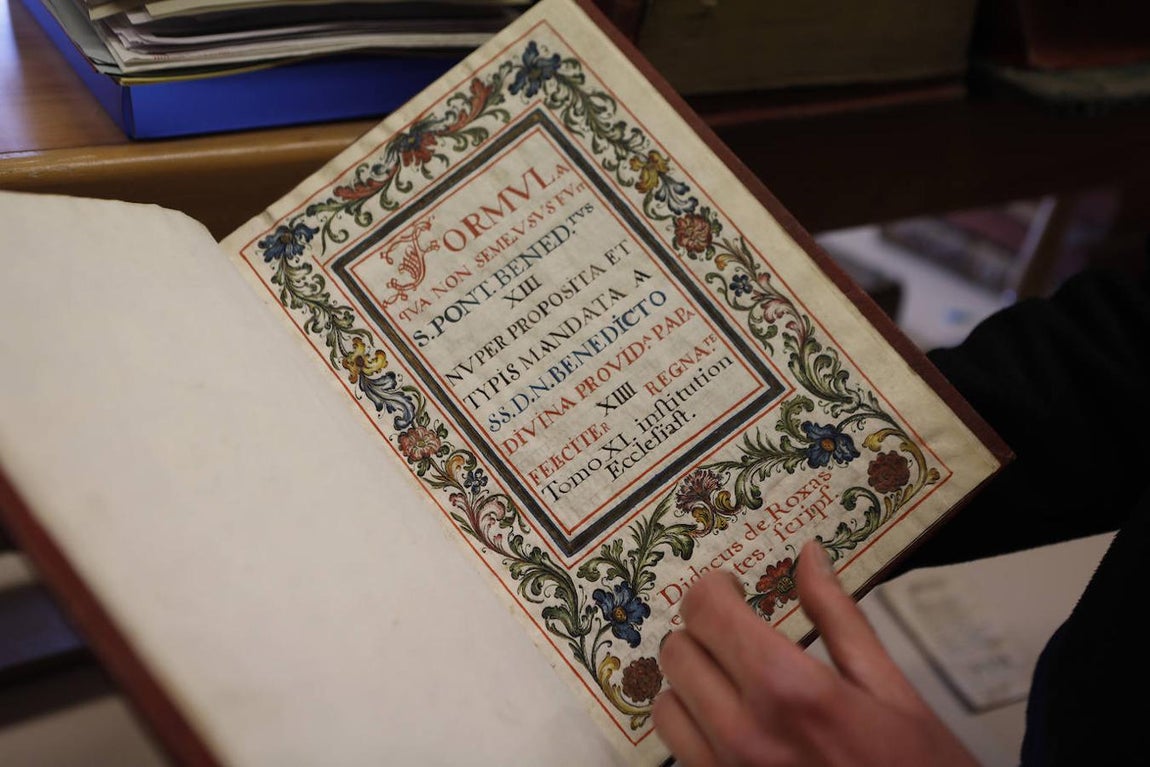 FORMVLA
QVA NON SEMEL VSVS FVIT
S. PONT. BENED.TVS
XIII
NVPER PROPOSITA ET
TYPIS MANDATA A
SS.D.N. BENEDICTO
DIVINA PROVID.A PAPA
FELICITER XIIII REGNA.TE
Tomo XI. inſtitution
Eccleſiaſt.
Didacus de Roxas
tes. ſcripſ.